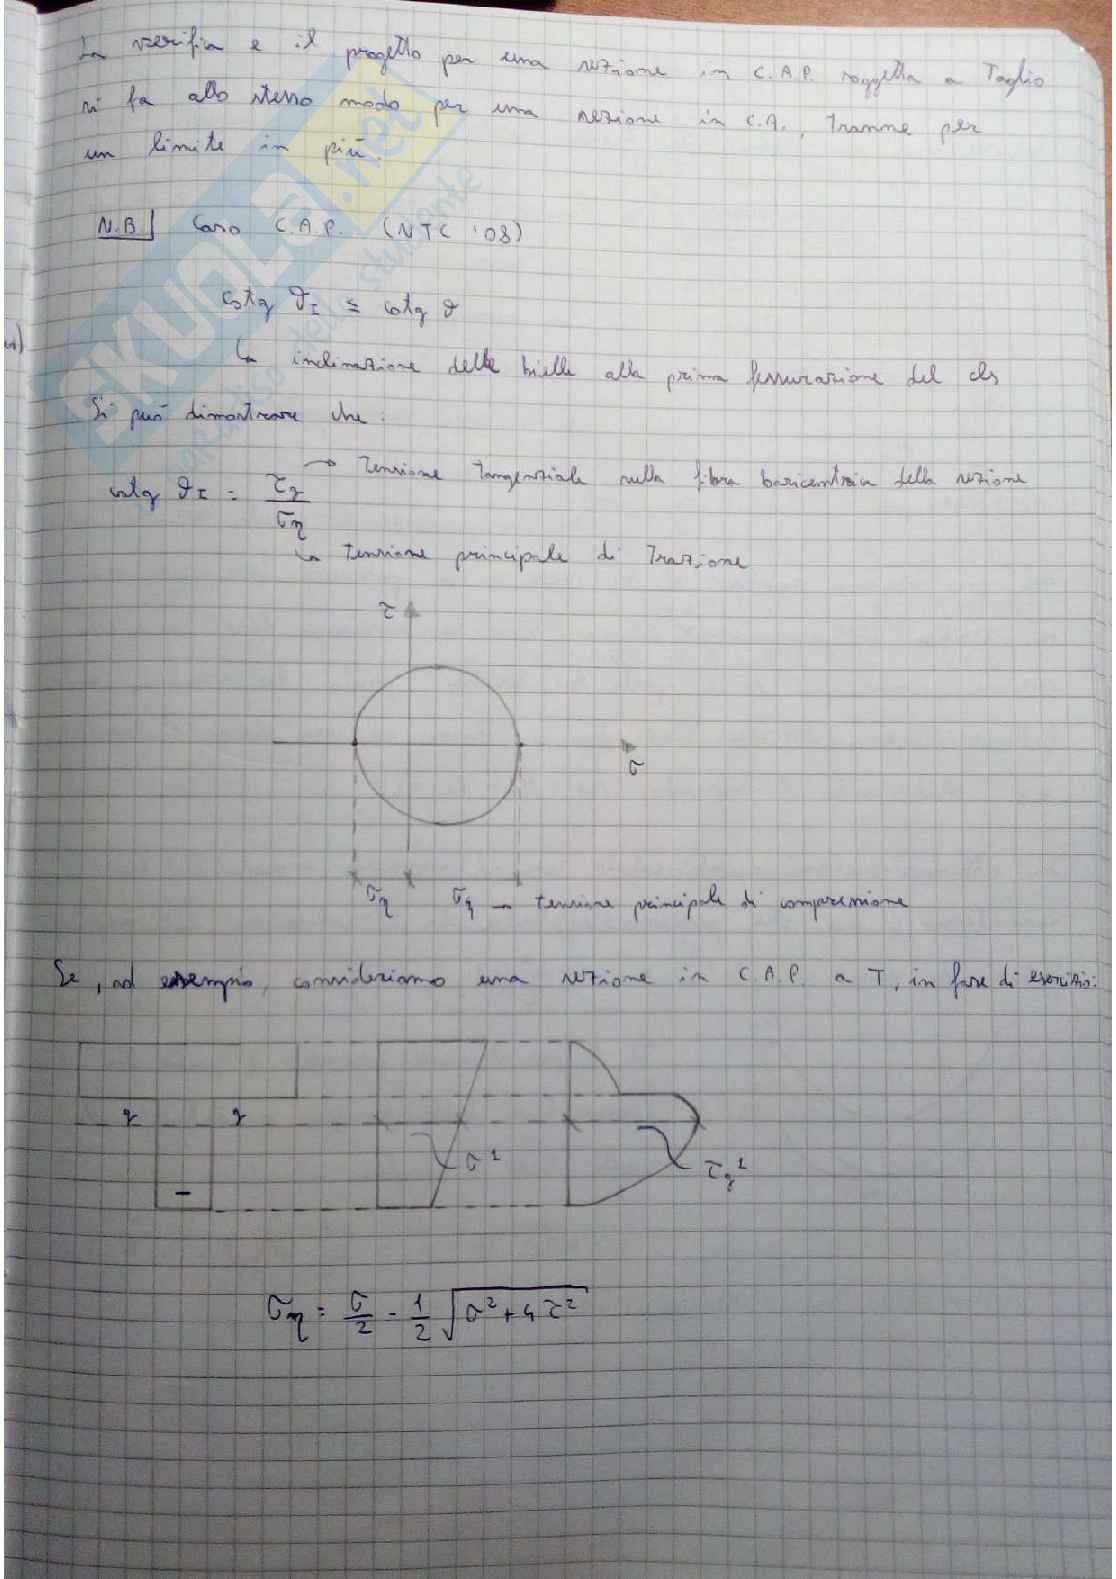 La verifica e il progetto per una sezione in C.A.P. soggetta a Taglio
si fa allo stesso modo per una sezione in C.A., Tranne per
un limite in più.
N.B| Caso C.A.P. (NTC '08)
cotg ϑI ≤ cotg ϑ
↳ inclinazione delle bielle alla prima fessurazione del cls
Si può dimostrare che:
cotg ϑI = τg / ση → Tensione Tangenziale sulla fibra baricentrica della sezione
↳ tensione principale di Trazione
τ
σ
ση σξ → tensione principale di compressione
Se, ad esempio, consideriamo una sezione in C.A.P. a T, in fase di esercizio:
g g
σ¹
τg¹
ση = σ/2 - 1/2 √(σ² + 4τ²)
SKUOLA.net